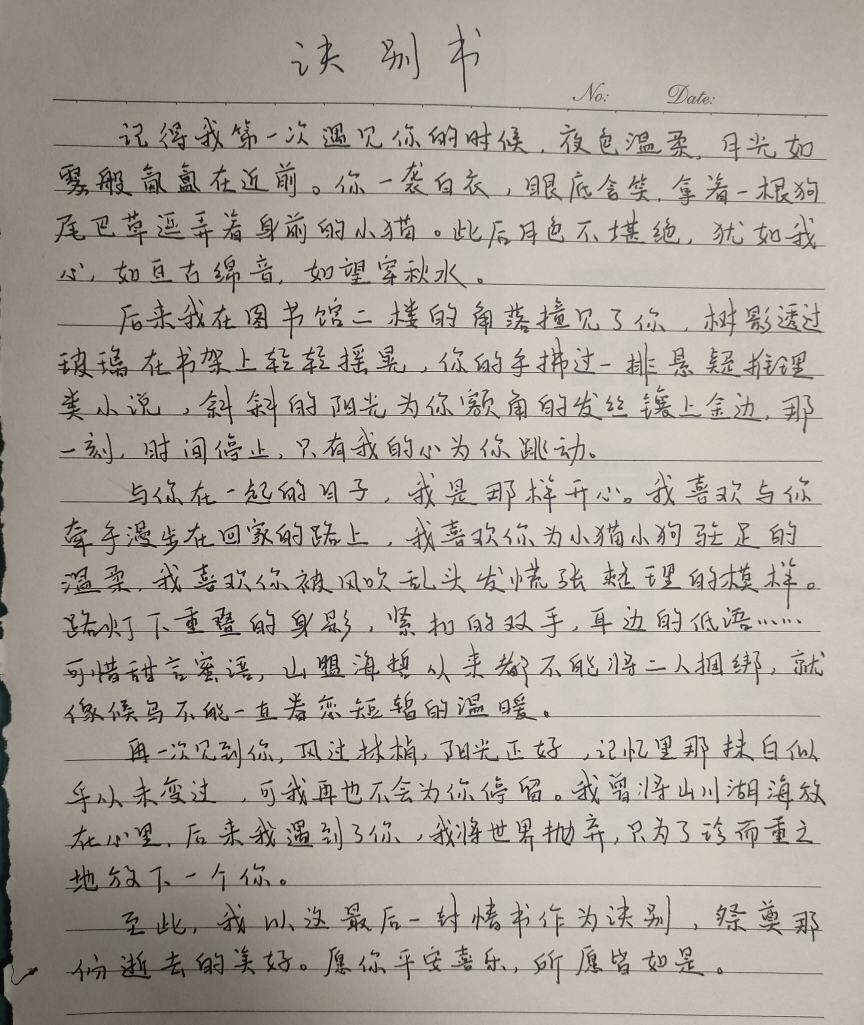 诀别书
No: Date:
记得我第一次遇见你的时候，夜色温柔，月光如
雾般氤氲在近前。你一袭白衣，眼底含笑，拿着一根狗
尾巴草逗弄着身前的小猫。此后月色不堪绝，犹如我
心，如亘古绵音，如望穿秋水。
后来我在图书馆二楼的角落撞见了你，树影透过
玻璃在书架上轻轻摇晃，你的手拂过一排悬疑推理
类小说，斜斜的阳光为你额角的发丝镶上金边，那
一刻，时间停止，只有我的心为你跳动。
与你在一起的日子，我是那样开心。我喜欢与你
牵手漫步在回家的路上，我喜欢你为小猫小狗驻足的
温柔，我喜欢你被风吹乱头发慌张整理的模样。
路灯下重叠的身影，紧扣的双手，耳边的低语……
可惜甜言蜜语，山盟海誓从来都不能将二人捆绑，就
像候鸟不能一直眷恋短暂的温暖。
再一次见到你，风过林梢，阳光正好，记忆里那抹白似
乎从未变过，可我再也不会为你停留。我曾将山川湖海放
在心里，后来我遇到了你，我将世界抛弃，只为了珍而重之
地放下一个你。
至此，我以这最后一封情书作为诀别，祭奠那
份逝去的美好。愿你平安喜乐，所愿皆如是。